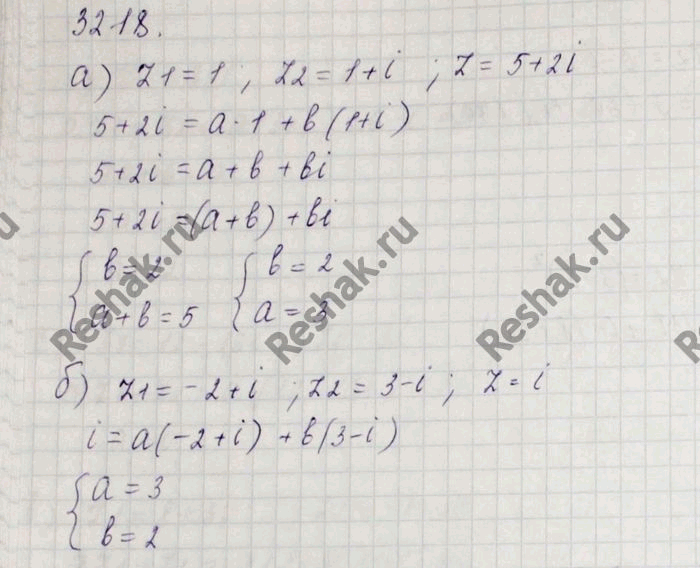 32.18.
а) z1 = 1 ; z2 = 1+i ; z = 5+2i
5+2i = a·1 + b(1+i)
5+2i = a + b + bi
5+2i = (a+b) + bi
{ b = 2 { b = 2
{ a + b = 5 { a = 3
б) z1 = -2+i ; z2 = 3-i ; z = i
i = a(-2+i) + b(3-i)
{ a = 3
{ b = 2
Reshak.ru
Reshak.ru
Reshak.ru